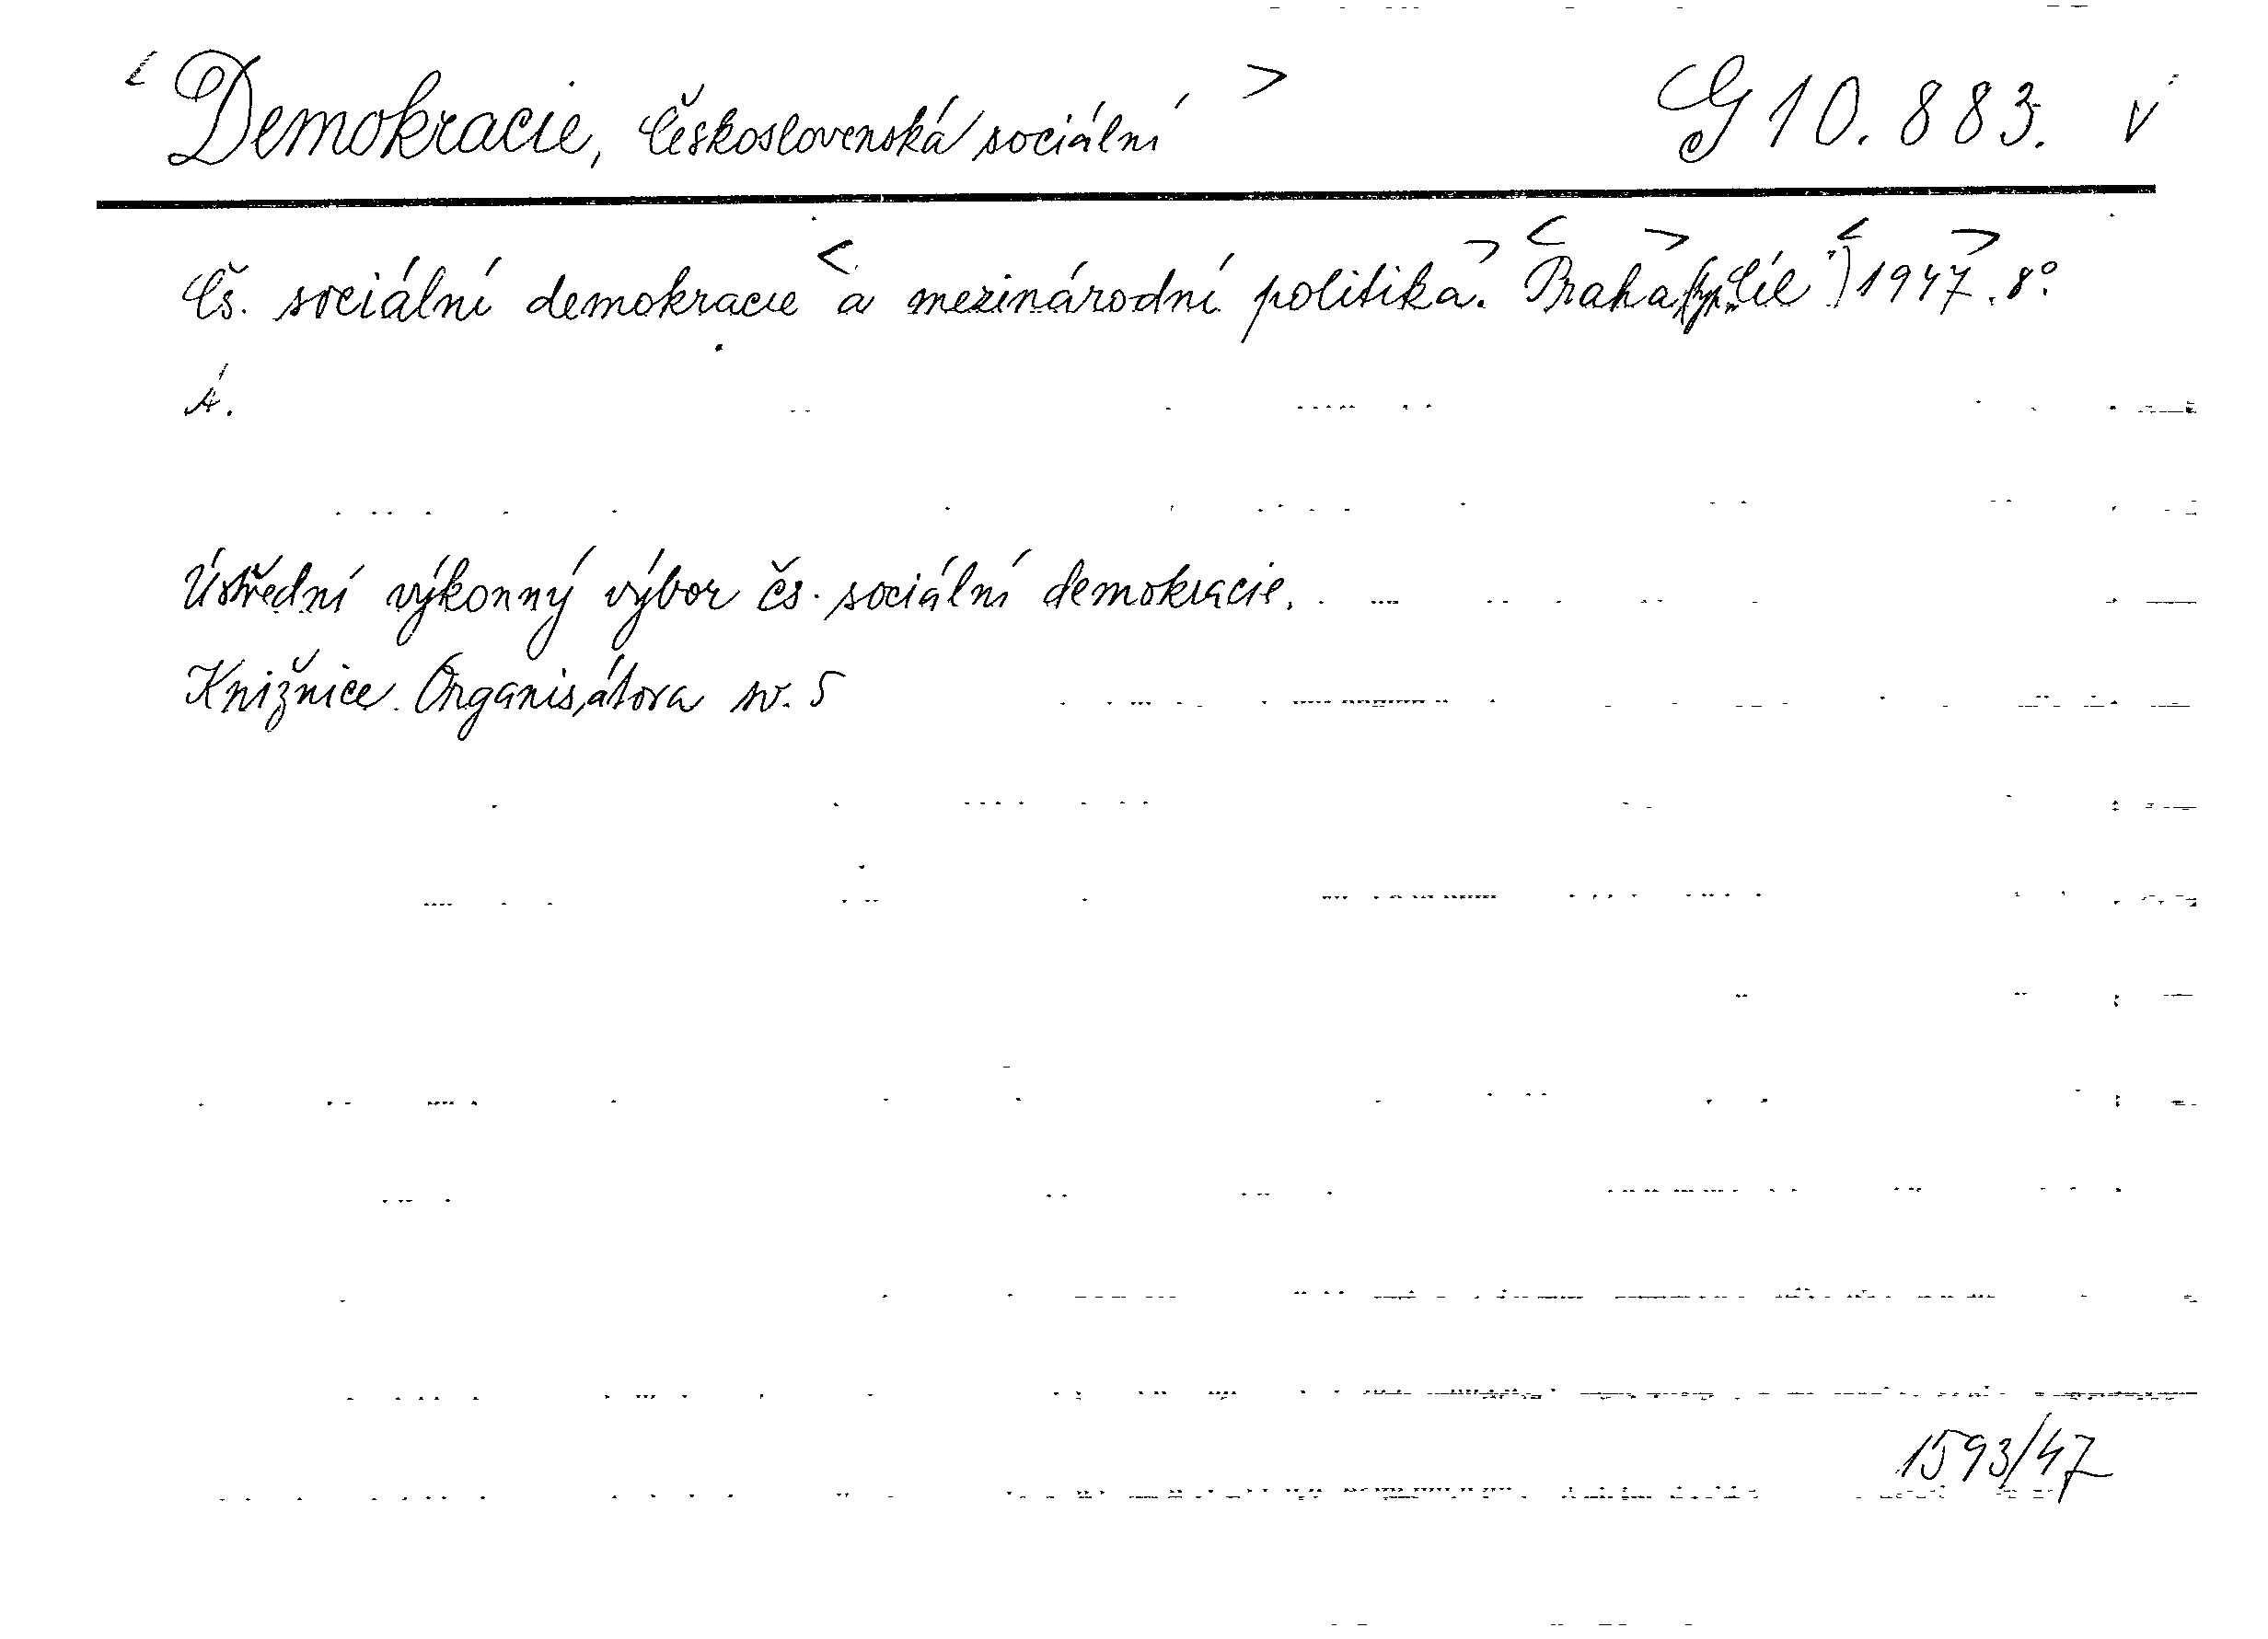 < Demokracie, Československá sociální > G 10.883. v
Čs. sociální demokracie < a mezinárodní politika. > < Praha > (typ. „Cíl") < 1947. > 8°.
Úst­řední výkonný výbor čs. sociální demokracie.
Knižnice Organisátora sv. 5
1593/47